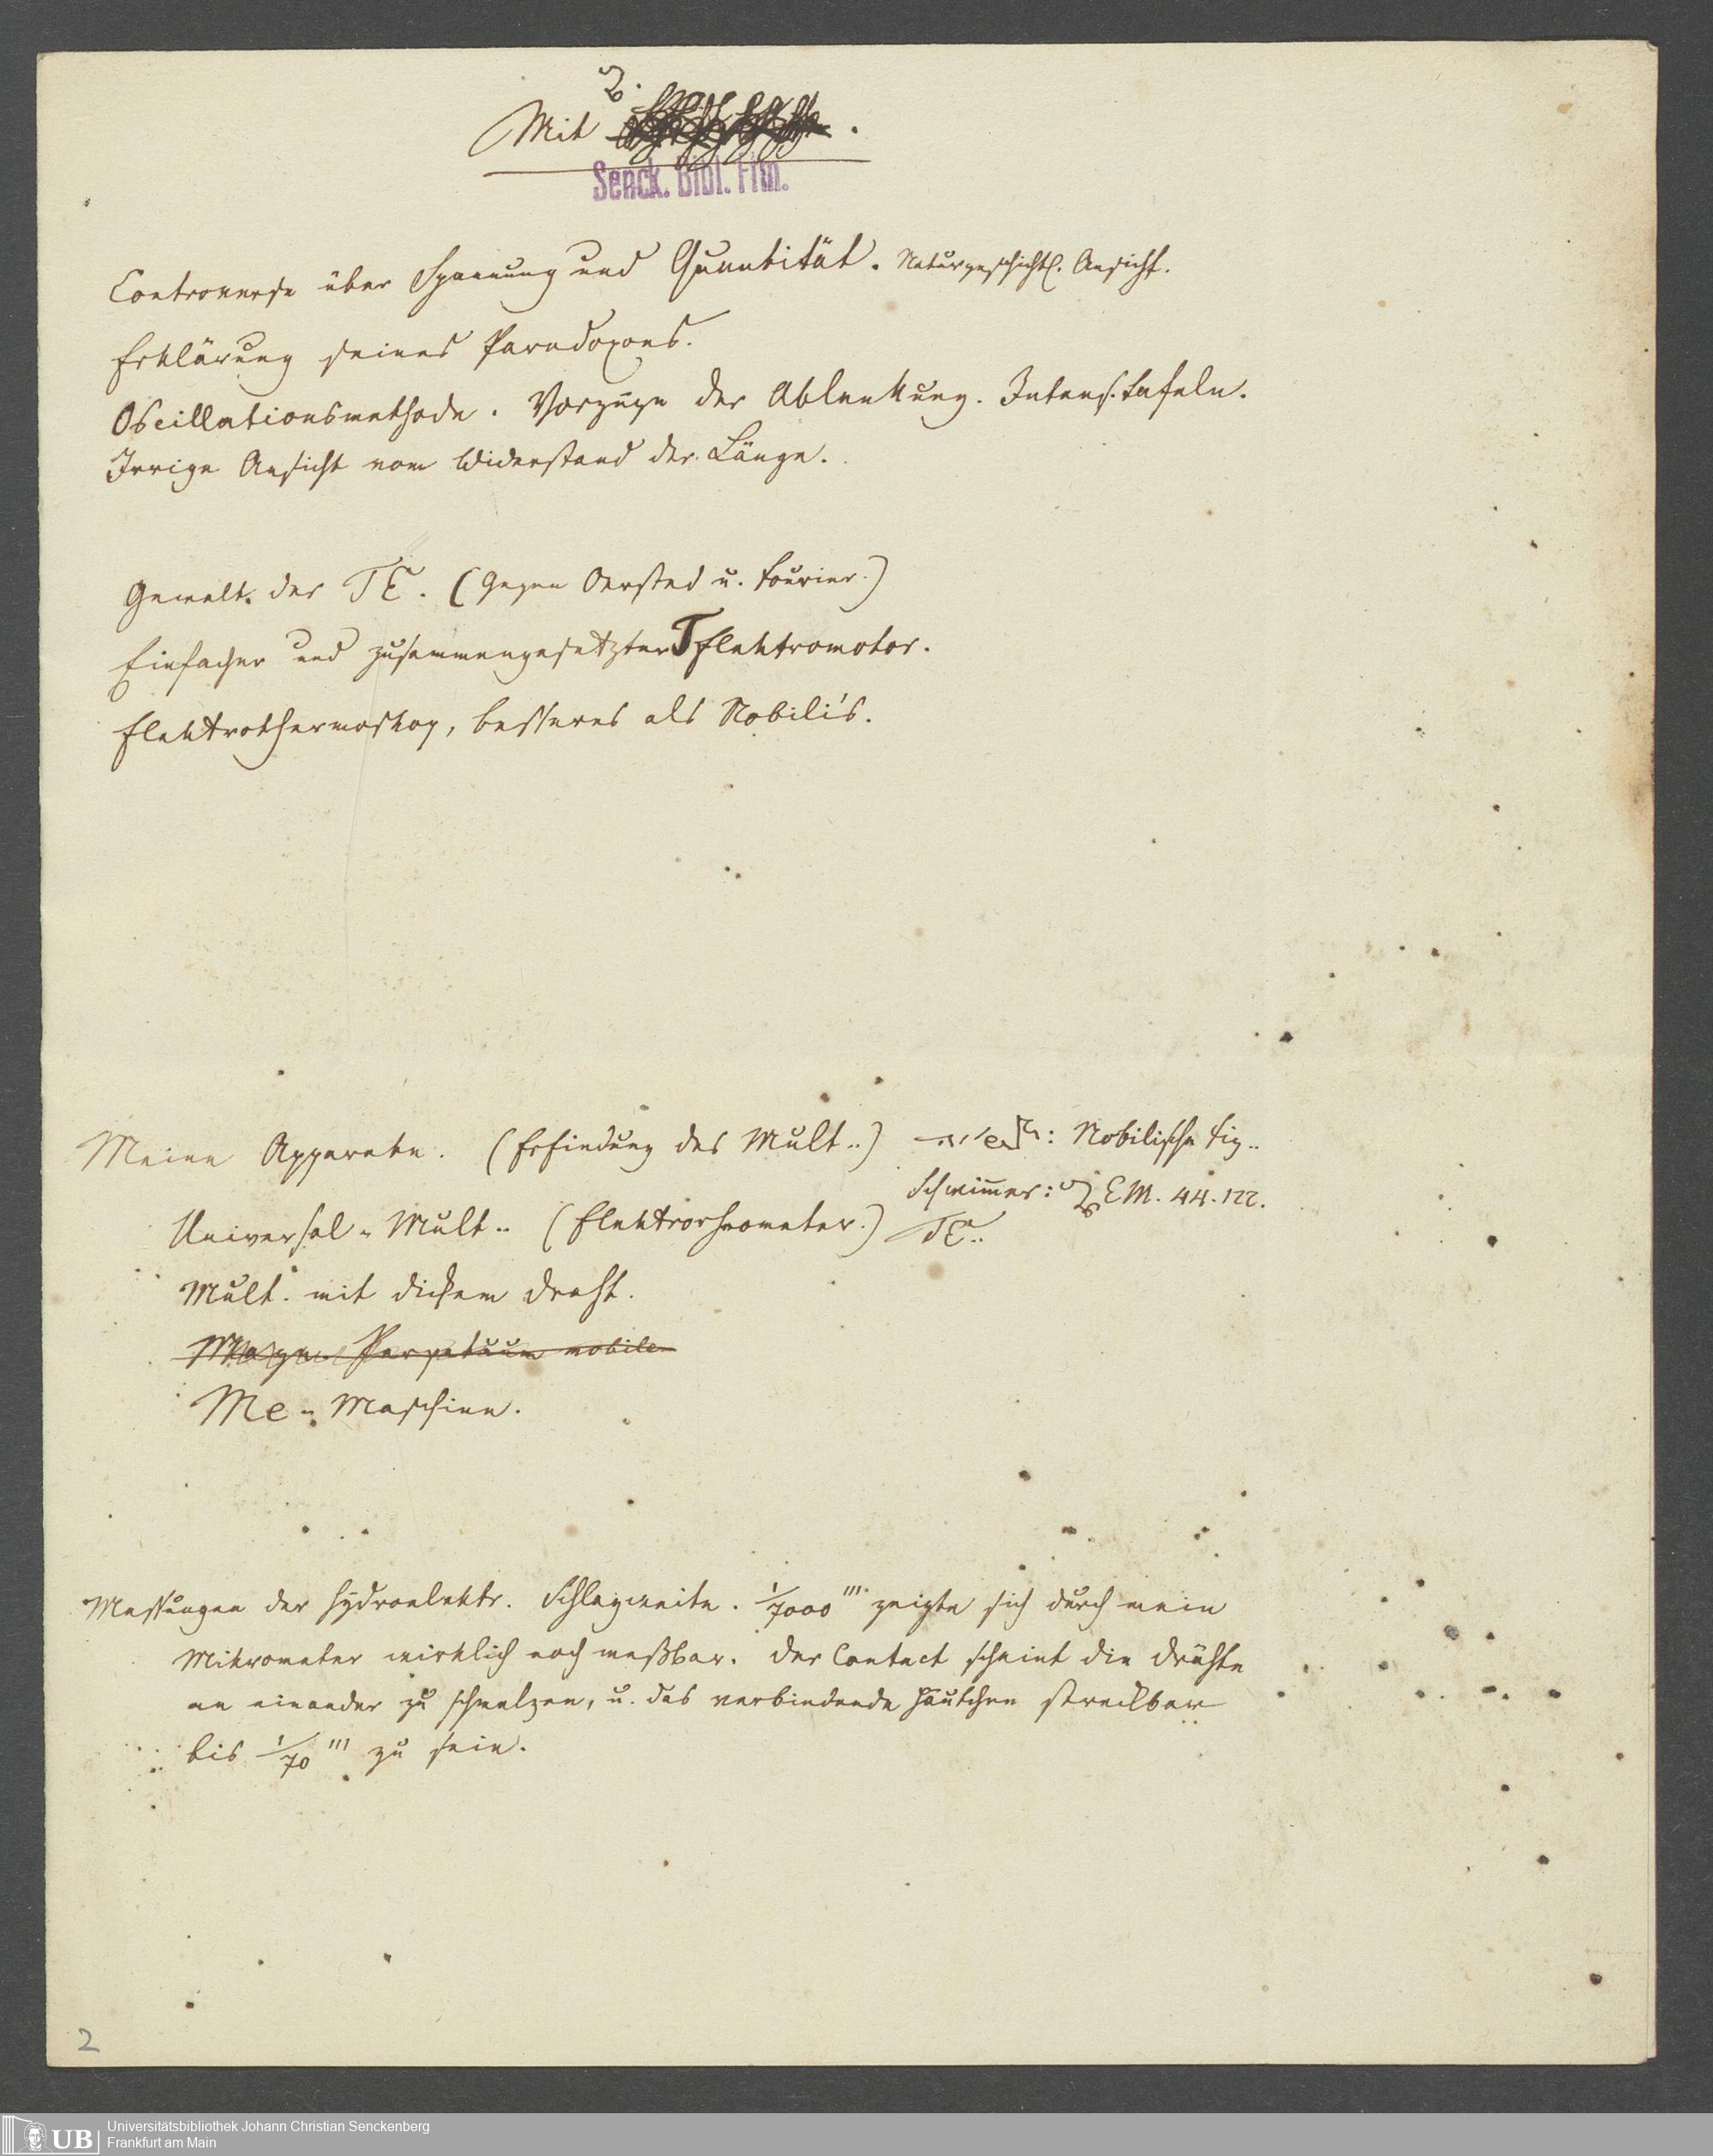 Mit
Senck. Bibl. Ffm.
Controverse über Spannung und Quantität. Naturgeschichtl. Ansicht.
Erklärung seines Paradoxons.
Oscillationsmethode. Vorzüge der Ablenkung. Intens. tafeln.
Irrige Ansicht vom Widerstand der Länge.
Gewalt. der TE. (gegen Oersted u. Fourier.)
Einfacher und zusammengesetzter T Elektromotor.
Elektrothermoskop, besseres als Nobili's.
Meine Apparate. (Erfindung des Mult..) : Nobilische Fig..
Schwim̅er: EM. 44. 122.
Universal-Mult.. (Elektrorheometer.) TE..
Mult. mit dickem Draht.
Magn. Perpetuum mobile
Me-Maschine.
Messungen der hydroelektr. Schlagweite. 1/7000 ''' zeigte sich durch mein
Mikrometer wirklich noch meßbar. Der Contact scheint die Drähte
an einander zu schmelzen, u. das verbindende Häutchen streckbar
bis 1/70 ''' zu sein.
2
UB Universitätsbibliothek Johann Christian Senckenberg
Frankfurt am Main